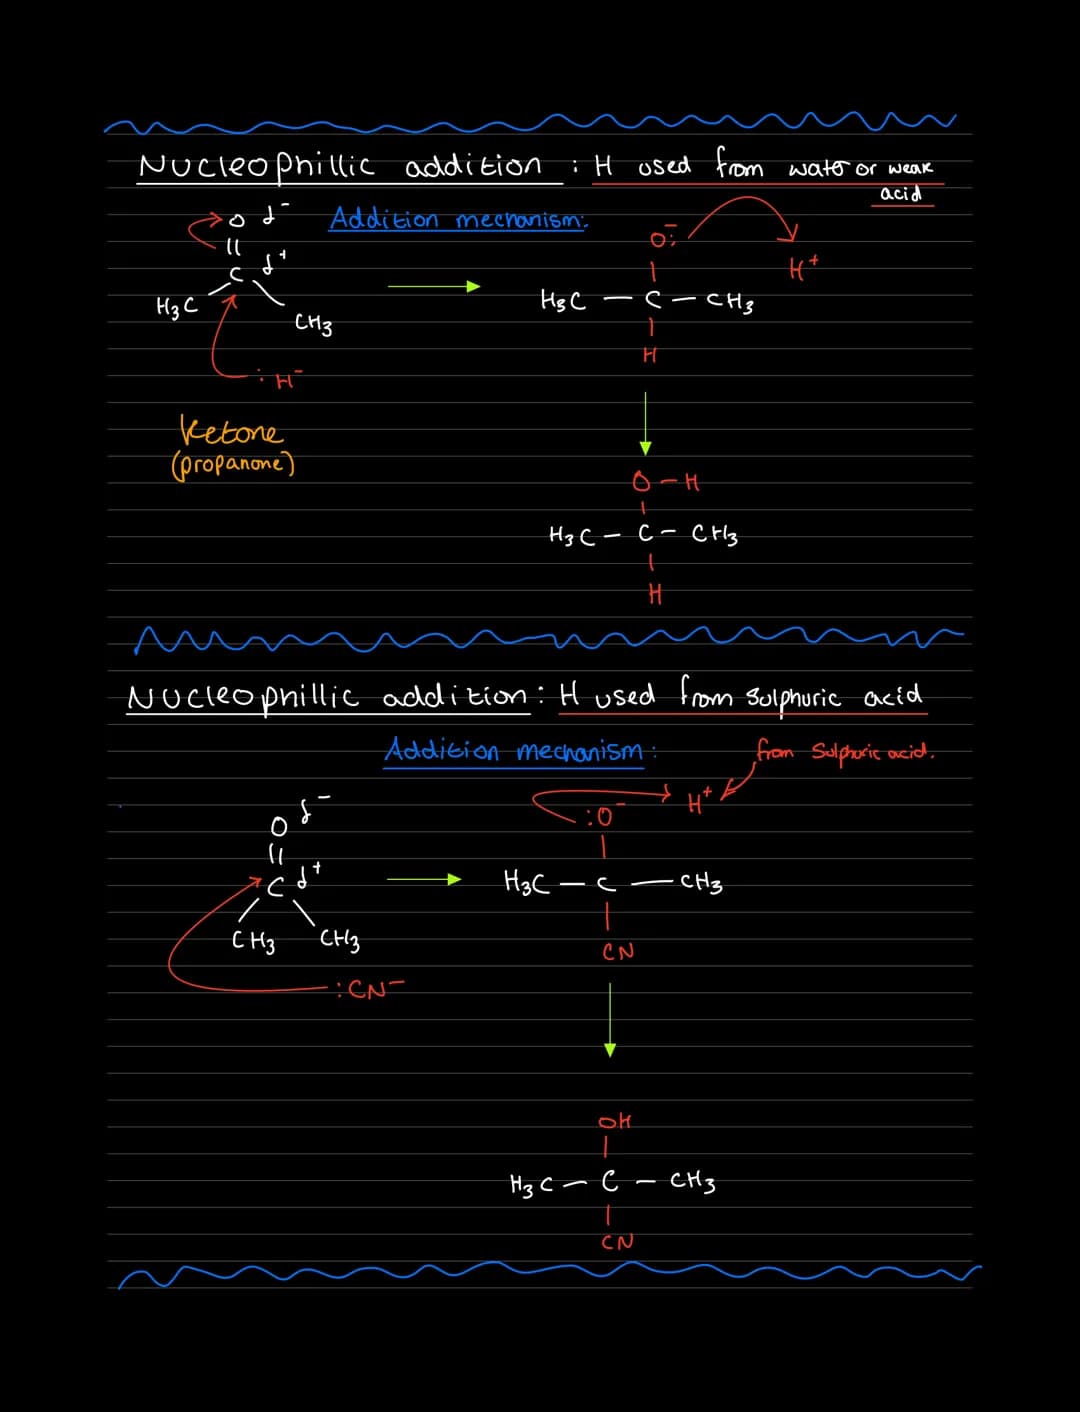 Nucleophillic addition : H used from water or weak
acid
Addition mechanism:
O δ-
||
C δ+
H3C
CH3
:H-
O:-
H+
H3C — C — CH3
H
Ketone
(propanone)
O — H
H3C — C — CH3
H
Nucleophillic addition: H used from sulphuric acid
Addition mechanism:
from Sulphuric acid.
H+
:O-
O δ-
||
C δ+
H3C — C — CH3
CH3 CH3
CN
:CN-
OH
H3C — C — CH3
CN